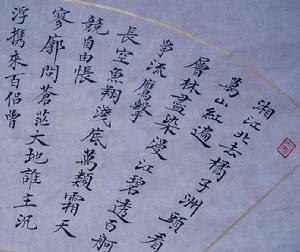 湘江北去橘子洲頭看
萬山紅遍
層林盡染漫江碧透百舸
爭流鷹擊
長空魚翔淺底萬類霜天
競自由悵
寥廓問蒼茫大地誰主沉
浮携來百侶曾